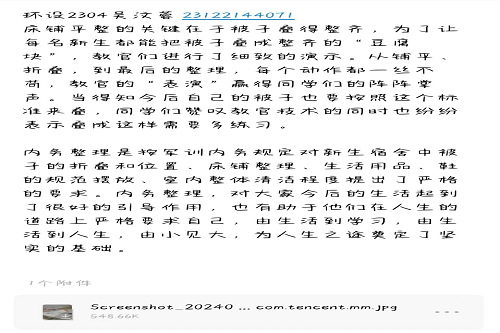 环设2304吴汶蓉 23122144071
床铺平整的关键在于被子叠得整齐，为了让
每名新生都能把被子叠成整齐的“豆腐
块”，教官们进行了细致的演示。从铺平、
折叠，到最后的整理，每个动作都一丝不
苟，教官的“表演”赢得同学们的阵阵掌
声。当得知今后自己的被子也要按照这个标
准来叠，同学们赞叹教官技术的同时也纷纷
表示叠成这样需要多练习。
内务整理是按军训内务规定对新生宿舍中被
子的折叠和位置、床铺整理、生活用品、鞋
的规范摆放、室内整体清洁程度提出了严格
的要求。内务整理，对大家今后的生活起到
了很好的引导作用，也有助于他们在人生的
道路上严格要求自己，由生活到学习，由生
活到人生，由小见大，为人生之途奠定了坚
实的基础。
1个附件
Screenshot_20240 ... com.tencent.mm.jpg
548.66K